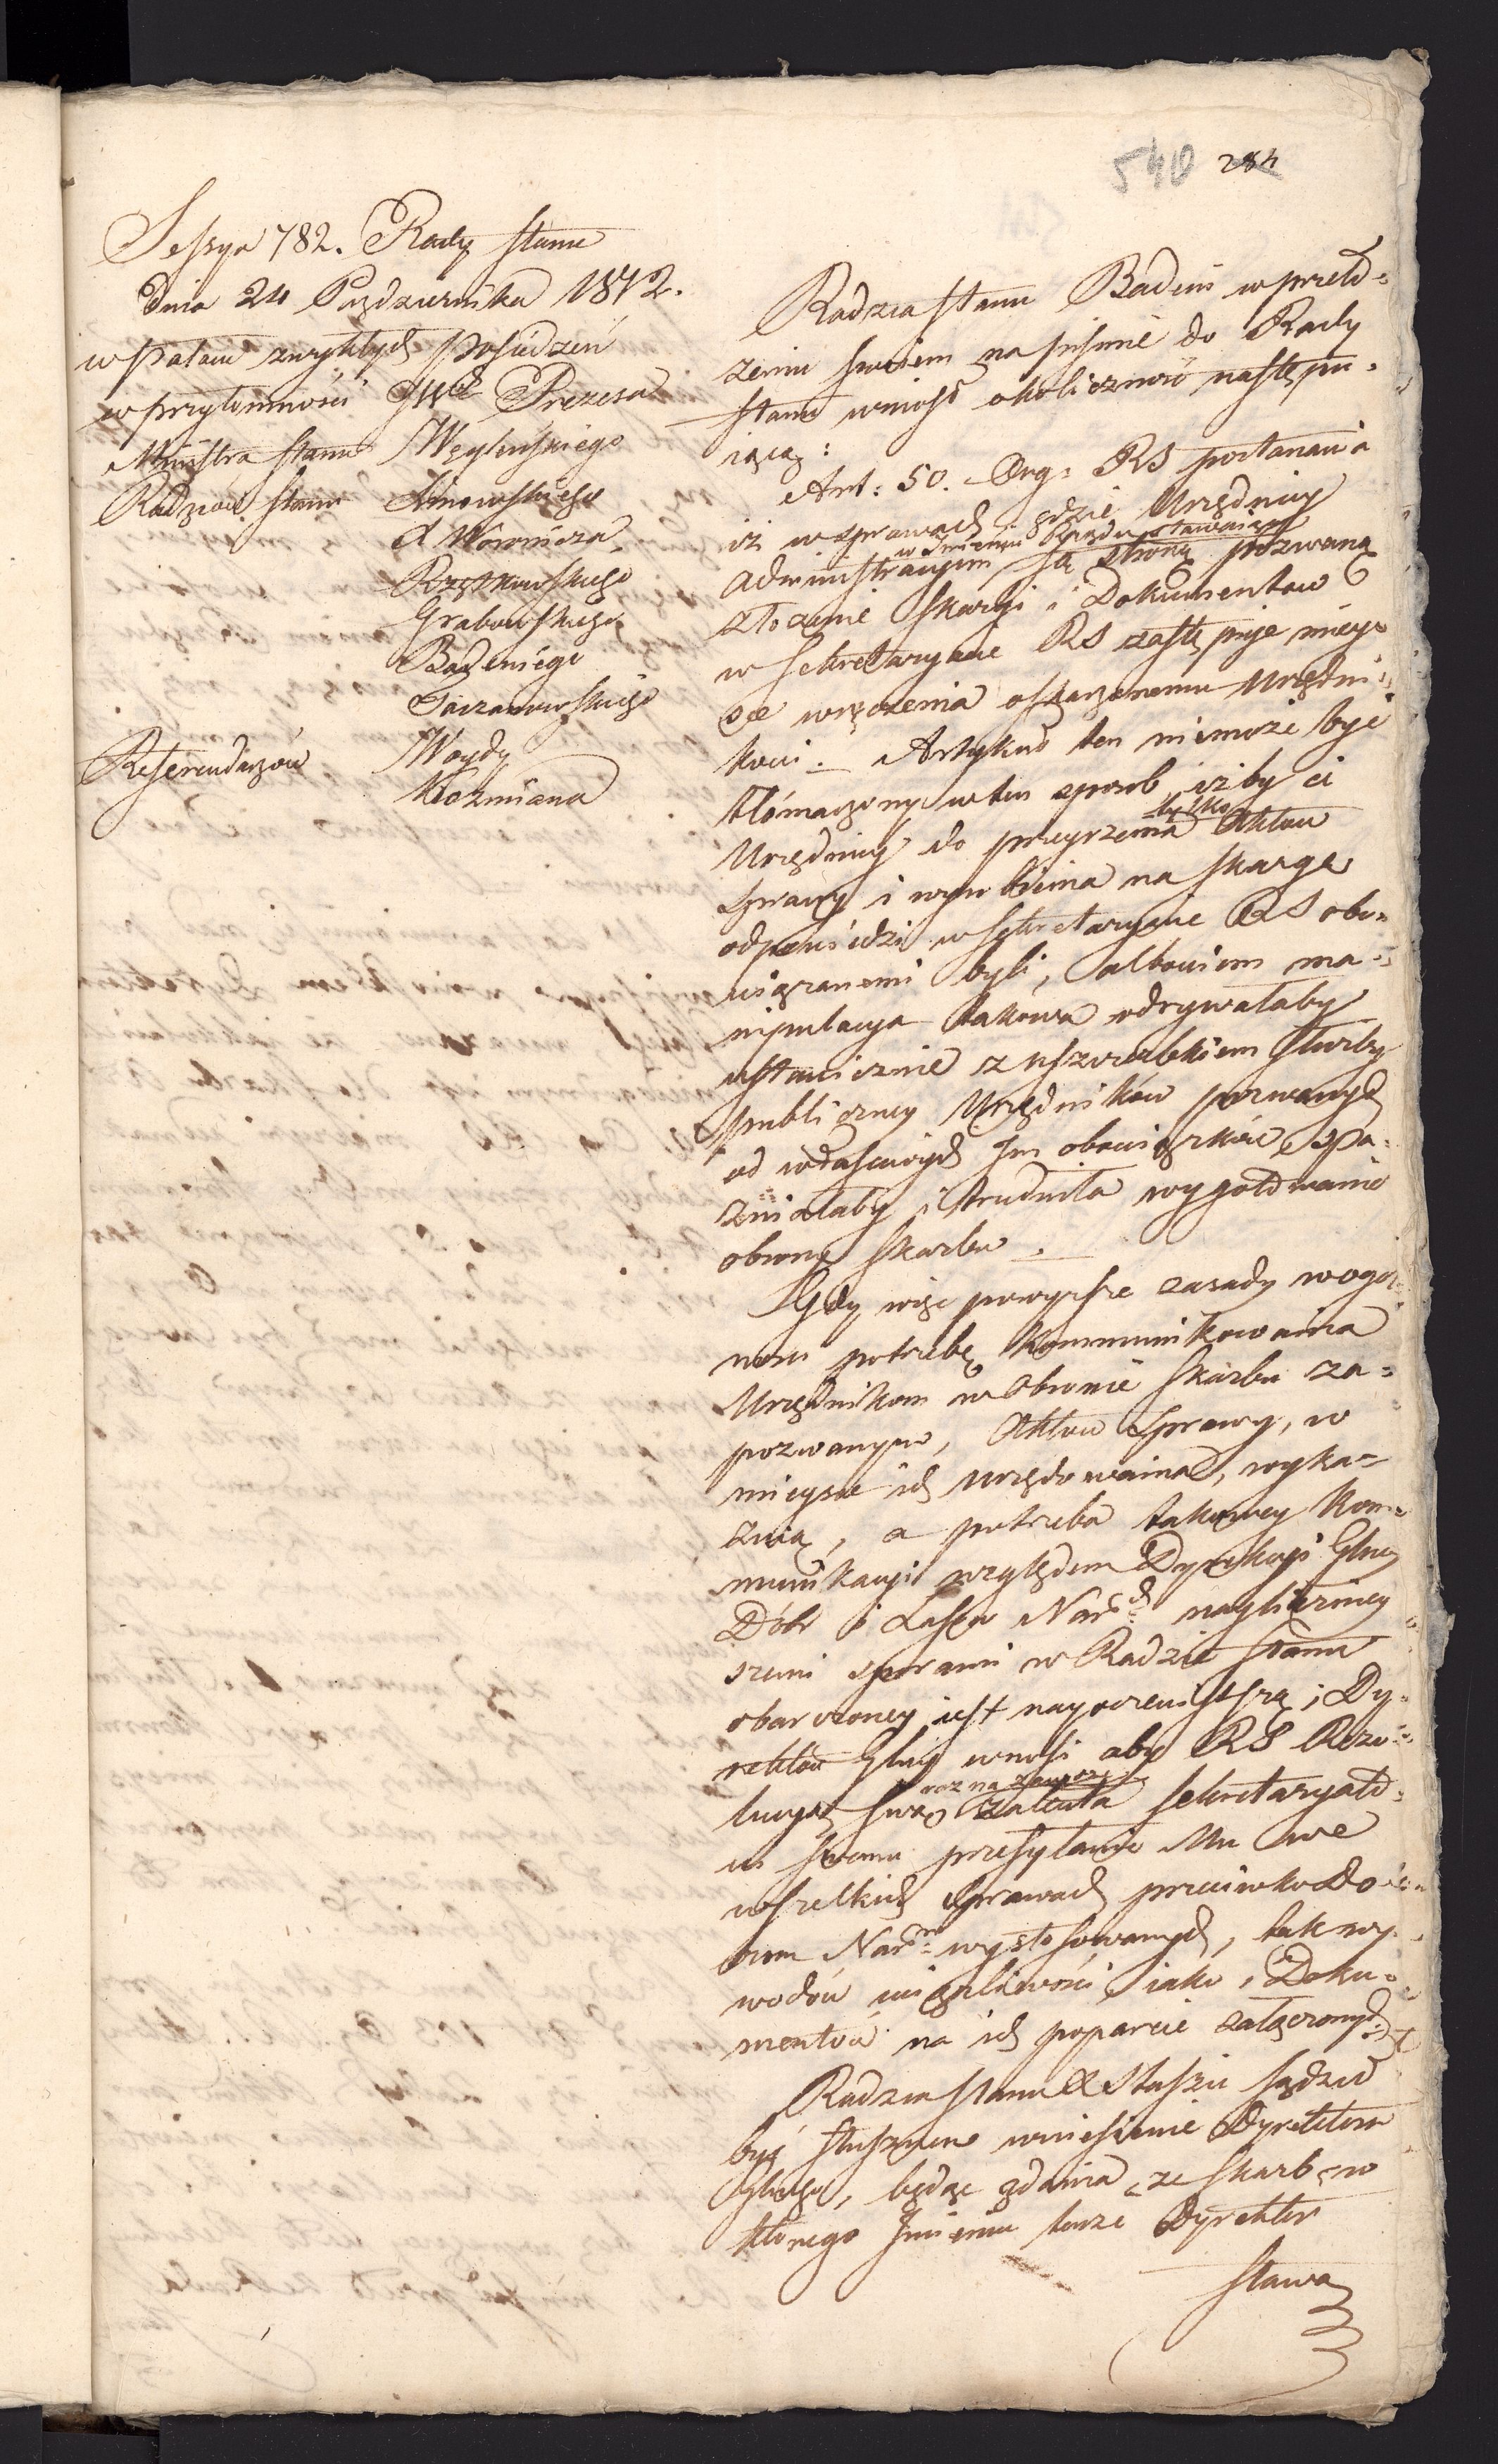 540 284
Sessya 782. Rady Stanu
Dnia 24 Października 1812.
w Pałacu zwykłych Posiedzeń
w przytomności JW Prezesa
Ministra Stanu Węgleńskiego
Radzców Stanu Linowskiego
A Woźnicza
Rzętkowskiego
Grabowskiego
Badeniego
Taczanowskiego
Referendarzów Woydy
Koźmiana
Radzca Stanu Badeni w przeło=
żeniu swoiem na piśmie do Rady
Stanu wniosł okoliczność następu=
iącą:
Art: 50. Org: RS postanawia
iż w sprawach gdzie Urzędnicy
w Imieniu Rządu stawaiący
administracyjni są stroną pozwaną
złożenie skargi i Dokumentów
w Sekretaryacie RS zastępuje mieys=
ce wręczenia oskarżonemu Urzędni=
kowi. Artykuł ten niemoże być
tłómaczony w ten sposob, iżby ci
tylko
Urzędnicy do przeyrzenia Aktów
sprawy i wyrobienia na skargę
odpowiedzi w Sekretaryacie RS obo=
wiązanemi byli, albowiem ma=
nipulacya takowa odrywałaby
ustawicznie z uszczerbkiem służby
publiczney Urzędników pozwanych
od właściwych Im obowiązków, opa=
źniałaby i trudniła wygotowanie
obrony Skarbu.
Gdy więc powyższe zasady w ogol=
ności potrzebę kommunikowania
Urzędnikom w Obronie Skarbu za=
pozwanym, Aktów Sprawy, w
mieysce ich urzędowania, wyka=
zuią, a potrzeba takowey kom=
munikacyi względem Dyrekcyi Głney
Dóbr i Lasów Nar:ch nayliczniey
szemi sporami w Radzie Stanu
obarczoney iest nayoczewistszą; Dy=
rektor Głny wnosi aby RS Rezo=
raz na zawsze
lucyą swą zaleciła Sekretaryato=
wi swemu przesyłanie Mu we
wszelkich sprawach przeciwko Do=
brom Nar:m wystosowanych, tak wy=
wodów uciążliwości, iako i Doku=
mentów na ich poparcie załączonych.
Radzca Stanu X Staszic sądził
być słusznem wniesienie Dyrektora
Głnego, będąc zdania, że Skarb, w
którego Imieniu tenże Dyrektor
stawa